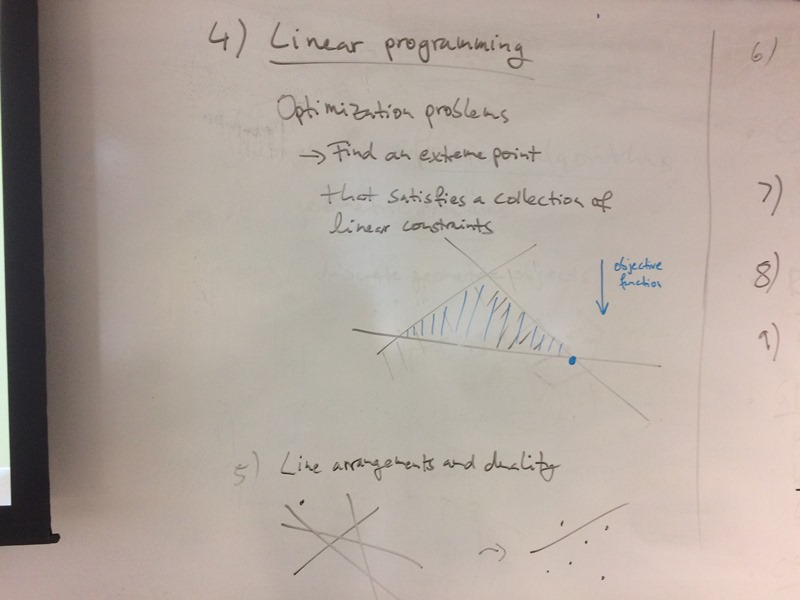 4) Linear programming
Optimization problems
→ Find an extreme point
that satisfies a collection of
linear constraints
objective
function
5) Line arrangements and duality
6)
7)
8)
9)